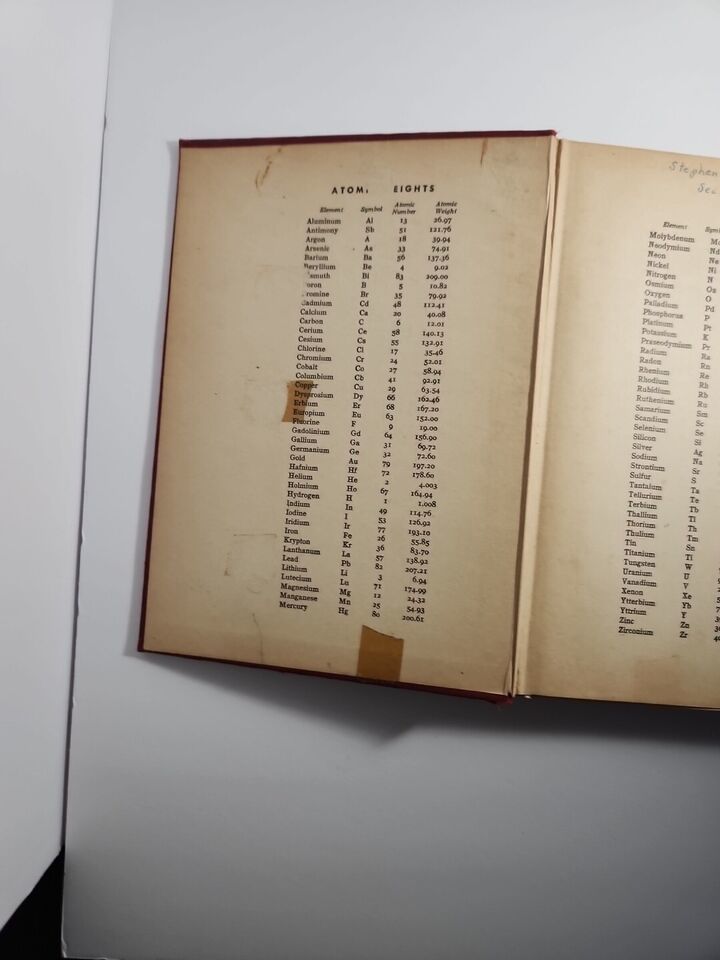 ATOM EIGHTS
Element Symbol Atomic Number Atomic Weight
Aluminum Al 13 26.97
Antimony Sb 51 121.76
Argon A 18 39.94
Arsenic As 33 74.91
Barium Ba 56 137.36
Beryllium Be 4 9.02
smuth Bi 83 209.00
oron B 5 10.82
romine Br 35 79.92
Cadmium Cd 48 112.41
Calcium Ca 20 40.08
Carbon C 6 12.01
Cerium Ce 58 140.13
Cesium Cs 55 132.91
Chlorine Cl 17 35.46
Chromium Cr 24 52.01
Cobalt Co 27 58.94
Columbium Cb 41 92.91
Copper Cu 29 63.54
Dysprosium Dy 66 162.46
Erbium Er 68 167.20
Europium Eu 63 152.00
Fluorine F 9 19.00
Gadolinium Gd 64 156.90
Gallium Ga 31 69.72
Germanium Ge 32 72.60
Gold Au 79 197.20
Hafnium Hf 72 178.60
Helium He 2 4.003
Holmium Ho 67 164.94
Hydrogen H 1 1.008
Indium In 49 114.76
Iodine I 53 126.92
Iridium Ir 77 193.10
Iron Fe 26 55.85
Krypton Kr 36 83.70
Lanthanum La 57 138.92
Lead Pb 82 207.21
Lithium Li 3 6.94
Lutecium Lu 71 174.99
Magnesium Mg 12 24.32
Manganese Mn 25 54.93
Mercury Hg 80 200.61
Stephen
Element Sym
Molybdenum Mo
Neodymium Nd
Neon Ne
Nickel Ni
Nitrogen N
Osmium Os
Oxygen O
Palladium Pd
Phosphorus P
Platinum Pt
Potassium K
Praseodymium Pr
Radium Ra
Radon Rn
Rhenium Re
Rhodium Rh
Rubidium Rb
Ruthenium Ru
Samarium Sm
Scandium Sc
Selenium Se
Silicon Si
Silver Ag
Sodium Na
Strontium Sr
Sulfur S
Tantalum Ta
Tellurium Te
Terbium Tb
Thallium Tl
Thorium Th
Thulium Tm
Tin Sn
Titanium Ti
Tungsten W
Uranium U
Vanadium V
Xenon Xe
Ytterbium Yb
Yttrium Y
Zinc Zn
Zirconium Zr